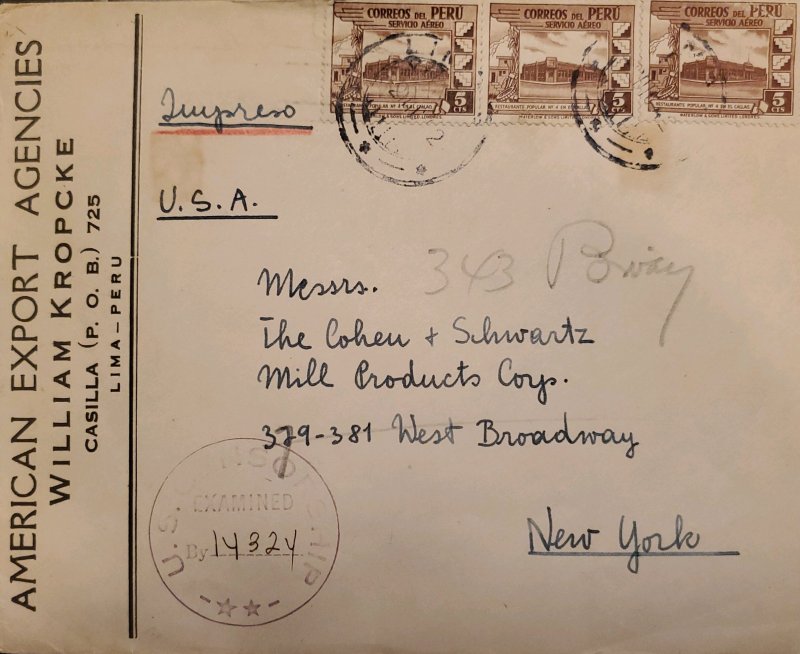 AMERICAN EXPORT AGENCIES
WILLIAM KROPCKE
CASILLA (P. O. B.) 725
LIMA–PERU
CORREOS DEL PERÚ
SERVICIO AÉREO
RESTAURANTE POPULAR Nº 4 EN EL CALLAO
5 CTS
CORREOS DEL PERÚ
SERVICIO AÉREO
RESTAURANTE POPULAR Nº 4 EN EL
5 CTS
WATERLOW & SONS LIMITED. LONDRES.
CORREOS DEL PERÚ
SERVICIO AÉREO
RESTAURANTE POPULAR Nº 4 EN EL CALLAO
5 CTS
WATERLOW & SONS LIMITED. LONDRES.
Impreso
U.S.A.
343 Bway
Messrs.
The Cohen + Schwartz
Mill Products Corp.
379-381 West Broadway
New York
U.S. CENSORSHIP
EXAMINED
By 14324